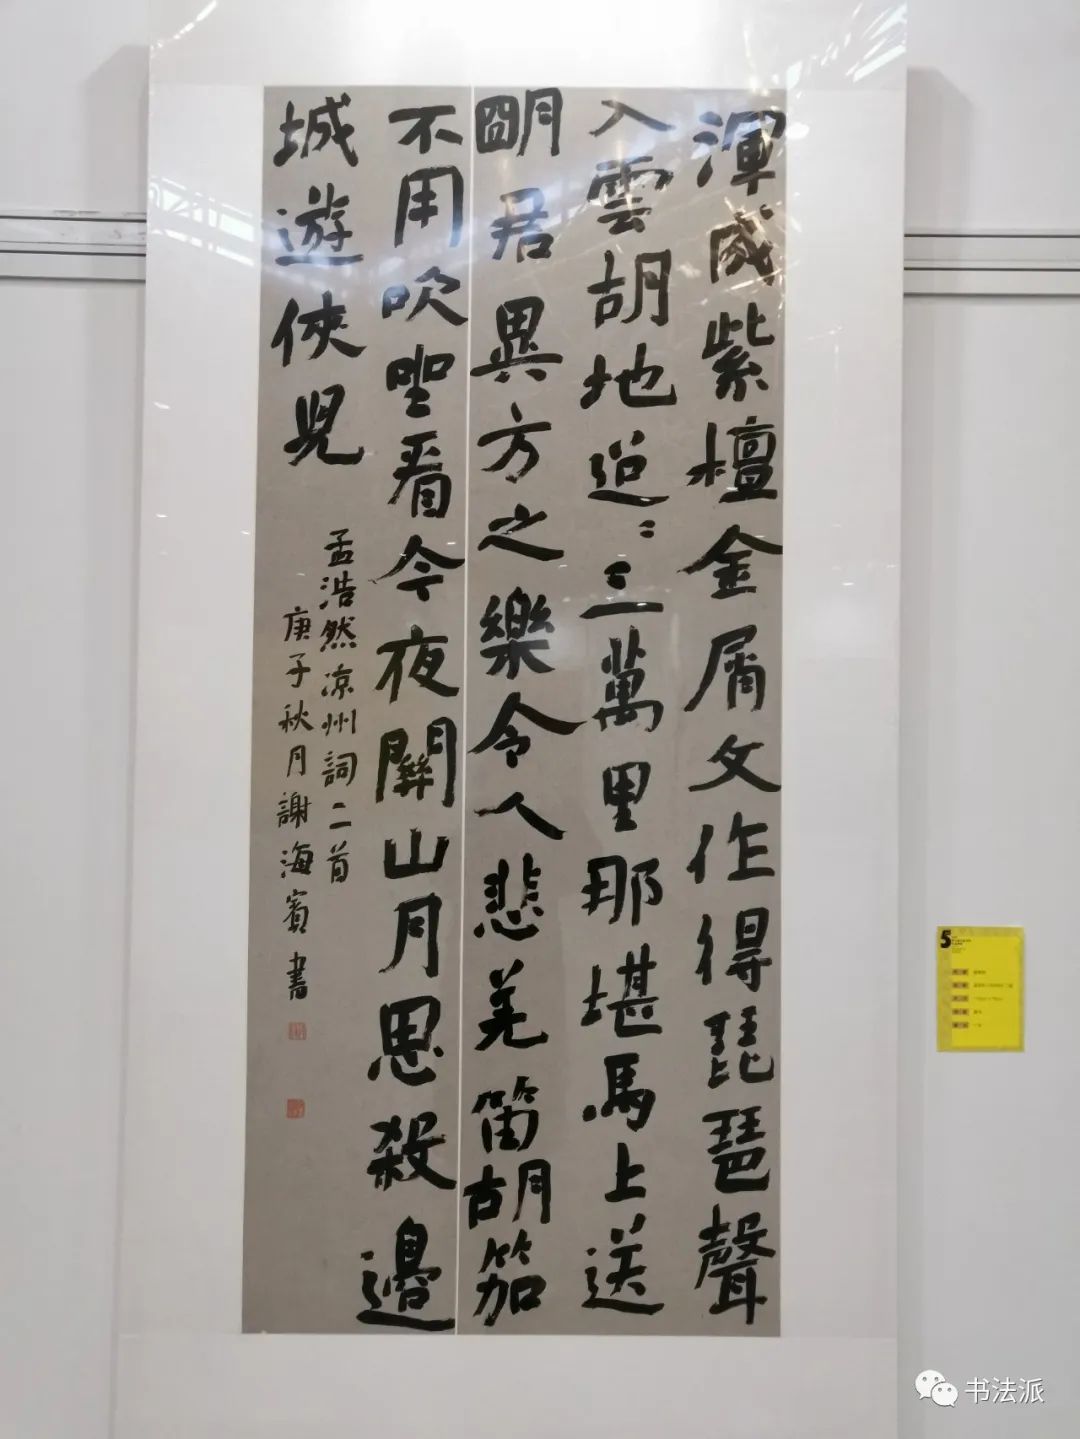 渾成紫檀金屑文作得琵琶聲
入雲胡地迢〻三萬里那堪馬上送
朙君異方之樂令人悲羌笛胡笳
不用吹坐看今夜關山月思殺邊
城遊俠兒
孟浩然凉州詞二首
庚子秋月謝海賓書
5
书法派